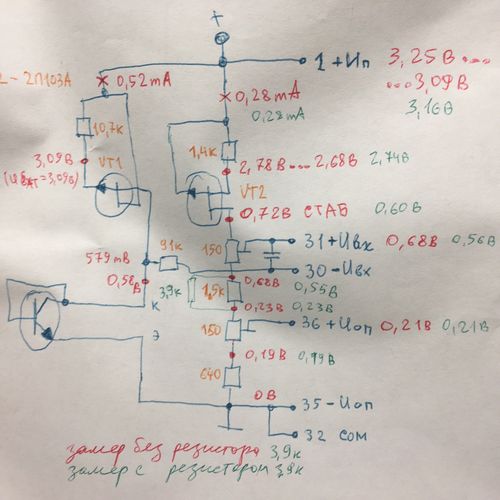 +
1 +Uп 3,25В ....
... 3,09В
3,16В
1-2П103А
0,52mA
0,28mA
0,28mA
10,7к
1,4к
3,09В
VT1
(UБАТ=3,09В)
2,78В ... 2,68В 2,74В
VT2
0,72В СТАБ 0,60В
150
31 +Uвх 0,68В 0,56В
579mВ
91к
30 -Uвх
0,58В
3,9к
1,5к
0,68В 0,55В
0,23В 0,23В
К
Э
150
36 +Uоп 0,21В 0,21В
0,19В 0,19В
640
0В
35 -Uоп
32 СОМ
замер без резистора 3,9к
замер с резистором 3,9к